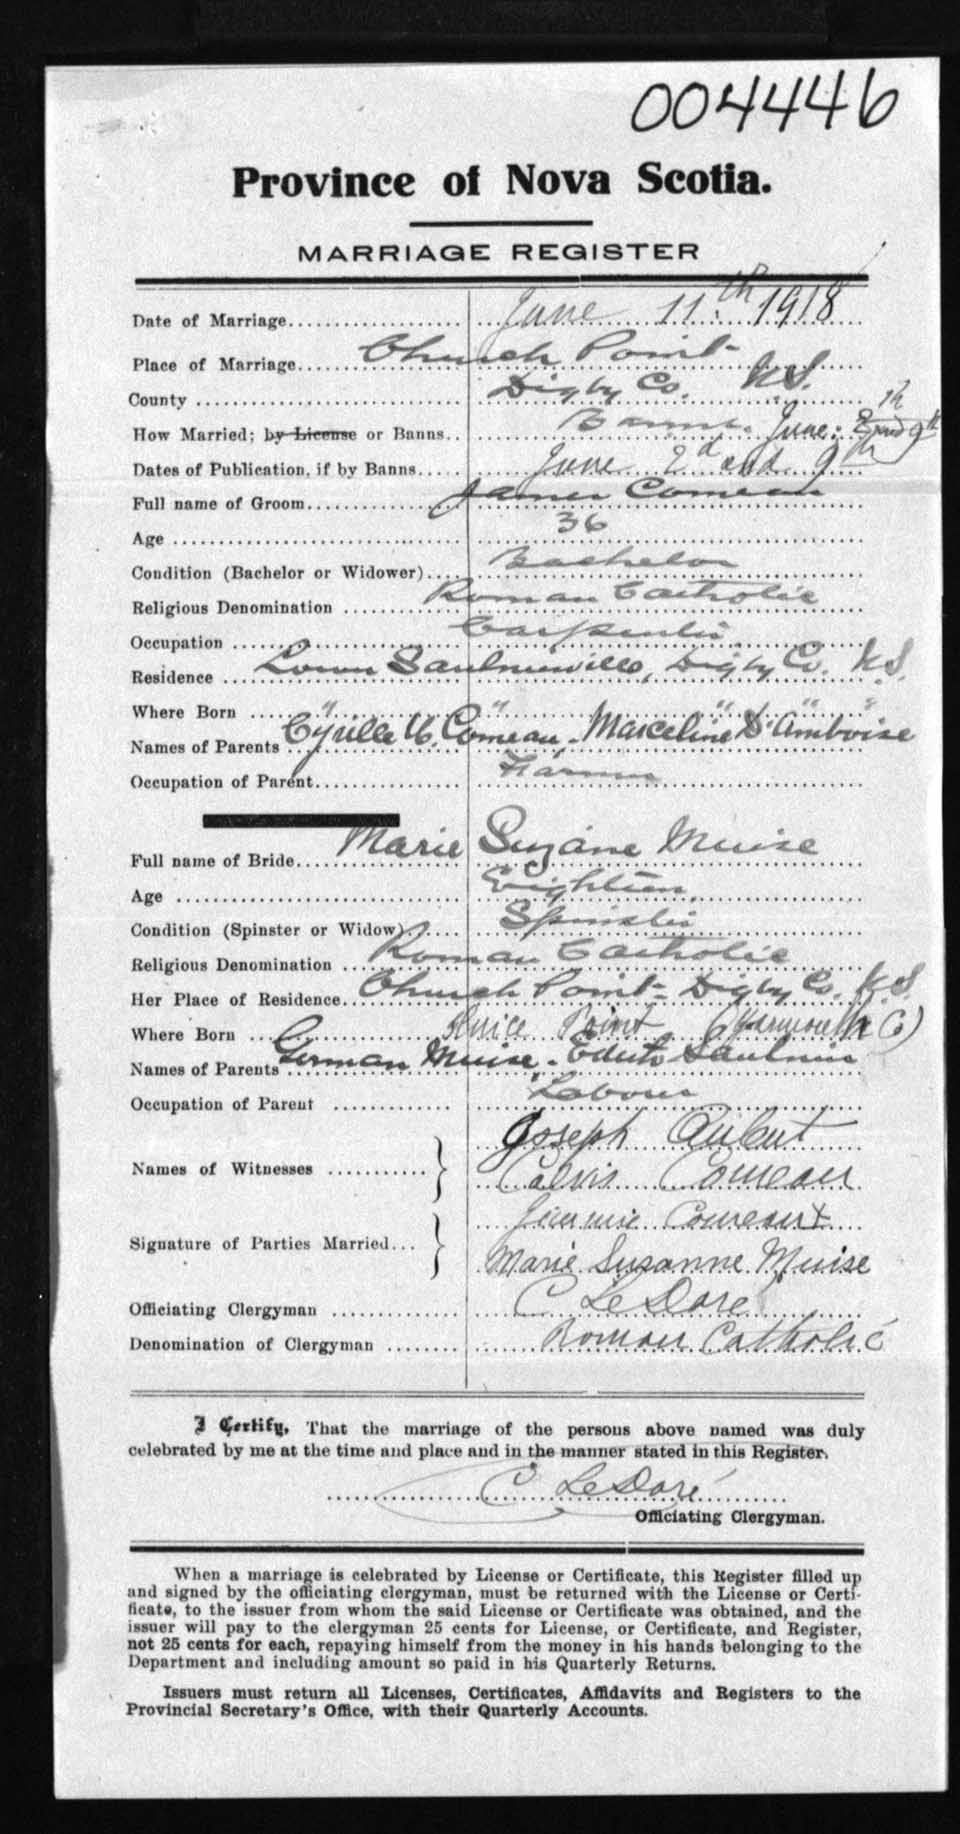 004446
Province of Nova Scotia.
MARRIAGE REGISTER
Date of Marriage.................... June 11th 1918
Place of Marriage.................... Church Point
County .................... Digby Co. N.S.
How Married; by License or Banns.. Banns. June: 2nd and 9th
Dates of Publication, if by Banns..... June 2d and 9th
Full name of Groom.................... James Comeau
Age .................... 36
Condition (Bachelor or Widower).... Bachelor
Religious Denomination .................... Roman Catholic
Occupation .................... Carpenter
Residence .................... Lower Saulnierville, Digby Co. N.S.
Where Born .................... " " " " "
Names of Parents .. Cyrille U. Comeau. Marceline D'Amboise
Occupation of Parent.................... Farmer
Full name of Bride.................... Marie Suzane Muise
Age .................... Eightien
Condition (Spinster or Widow)....... Spinster
Religious Denomination .................... Roman Catholic
Her Place of Residence.................... Church Point- Digby Co. N.S.
Where Born .................... Muice Point (Yarmouth Co)
Names of Parents .. German Muise. Edith Saulnier
Occupation of Parent .................... Labourer
Joseph Aubut
Names of Witnesses ........... }
Calvis Comeau
Jemmie Comeau X
Signature of Parties Married... }
Marie Susanne Muise
Officiating Clergyman .................... C LeDoré
Denomination of Clergyman ........ Roman Catholic
I Certify, That the marriage of the persons above named was duly
celebrated by me at the time and place and in the manner stated in this Register.
C LeDoré
Officiating Clergyman.
When a marriage is celebrated by License or Certificate, this Register filled up
and signed by the officiating clergyman, must be returned with the License or Certi-
ficate, to the issuer from whom the said License or Certificate was obtained, and the
issuer will pay to the clergyman 25 cents for License, or Certificate, and Register,
not 25 cents for each, repaying himself from the money in his hands belonging to the
Department and including amount so paid in his Quarterly Returns.
Issuers must return all Licenses, Certificates, Affidavits and Registers to the
Provincial Secretary's Office, with their Quarterly Accounts.